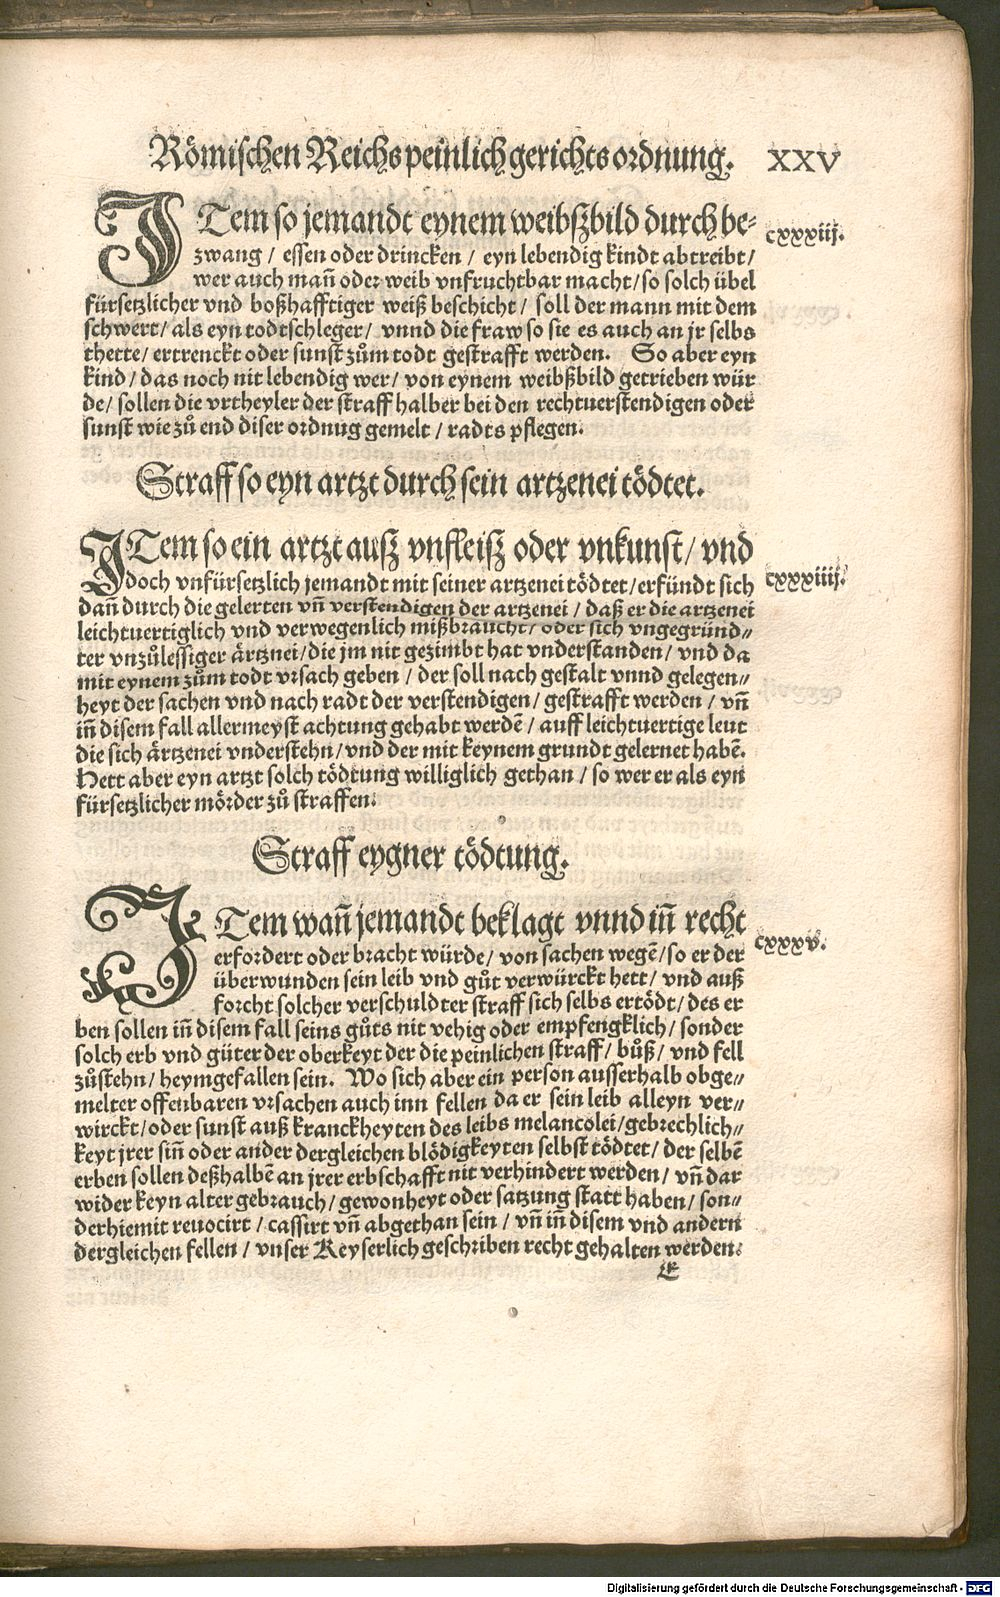 Römischen Reichs peinlich gerichts ordnung. XXV
ITem so jemandt eynem weibßbild durch be-
cxxxiij.
zwang / essen oder drincken / eyn lebendig kindt abtreibt /
wer auch mañ oder weib vnfruchtbar macht / so solch übel
fürsetzlicher vnd boßhafftiger weiß beschicht / soll der mann mit dem
schwert / als eyn todtschleger / vnnd die fraw so sie es auch an jr selbs
thette / ertrenckt oder sunst zům todt gestrafft werden. So aber eyn
kind / das noch nit lebendig wer / von eynem weibßbild getrieben wür
de / sollen die vrtheyler der straff halber bei den rechtuerstendigen oder
sunst wie zů end diser ordnug gemelt / radts pflegen.
Straff so eyn artzt durch sein artzenei tödtet.
ITem so ein artzt auß vnfleiß oder vnkunst / vnd
cxxxiiij.
doch vnfürsetzlich jemandt mit seiner artzenei tödtet / erfündt sich
dañ durch die gelerten vñ verstendigen der artzenei / daß er die artzenei
leichtuertiglich vnd verwegenlich mißbraucht / oder sich vngegründ-
ter vnzůlessiger ärtznei / die jm nit gezimbt hat vnderstanden / vnd da
mit eynem zům todt vrsach geben / der soll nach gestalt vnnd gelegen-
heyt der sachen vnd nach radt der verstendigen / gestrafft werden / vñ
iñ disem fall allermeyst achtung gehabt werdẽ / auff leichtuertige leut
die sich ärtzenei vnderstehn / vnd der mit keynem grundt gelernet habẽ.
Hett aber eyn artzt solch tödtung williglich gethan / so wer er als eyn
fürsetzlicher mörder zů straffen.
Straff eygner tödtung.
ITem wañ jemandt beklagt vnnd iñ recht
cxxxv.
erfordert oder bracht würde / von sachen wegẽ / so er der
überwunden sein leib vnd gůt verwürckt hett / vnd auß
forcht solcher verschuldter straff sich selbs ertödt / des er
ben sollen iñ disem fall seins gůts nit vehig oder empfengklich / sonder
solch erb vnd güter der oberkeyt der die peinlichen straff / bůß / vnd fell
zůstehn / heymgefallen sein. Wo sich aber ein person ausserhalb obge-
melter offenbaren vrsachen auch inn fellen da er sein leib alleyn ver-
wirckt / oder sunst auß kranckheyten des leibs melancolei / gebrechlich-
keyt jrer siñ oder ander dergleichen blödigkeyten selbst tödtet / der selbẽ
erben sollen deßhalbẽ an jrer erbschafft nit verhindert werden / vñ dar
wider keyn alter gebrauch / gewonheyt oder satzung statt haben / son-
der hiemit reuocirt / cassirt vñ abgethan sein / vñ iñ disem vnd andern
dergleichen fellen / vnser Keyserlich geschriben recht gehalten werden.
E
Digitalisierung gefördert durch die Deutsche Forschungsgemeinschaft - DFG